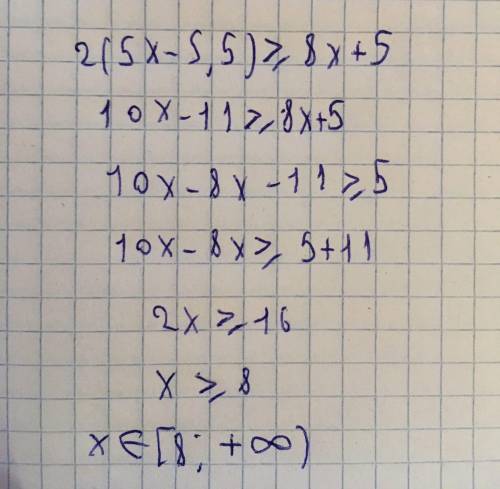 2(5x-5,5)⩾8x+5
10x-11⩾8x+5
10x-8x-11⩾5
10x-8x⩾5+11
2x⩾16
x⩾8
x∈[8;+∞)